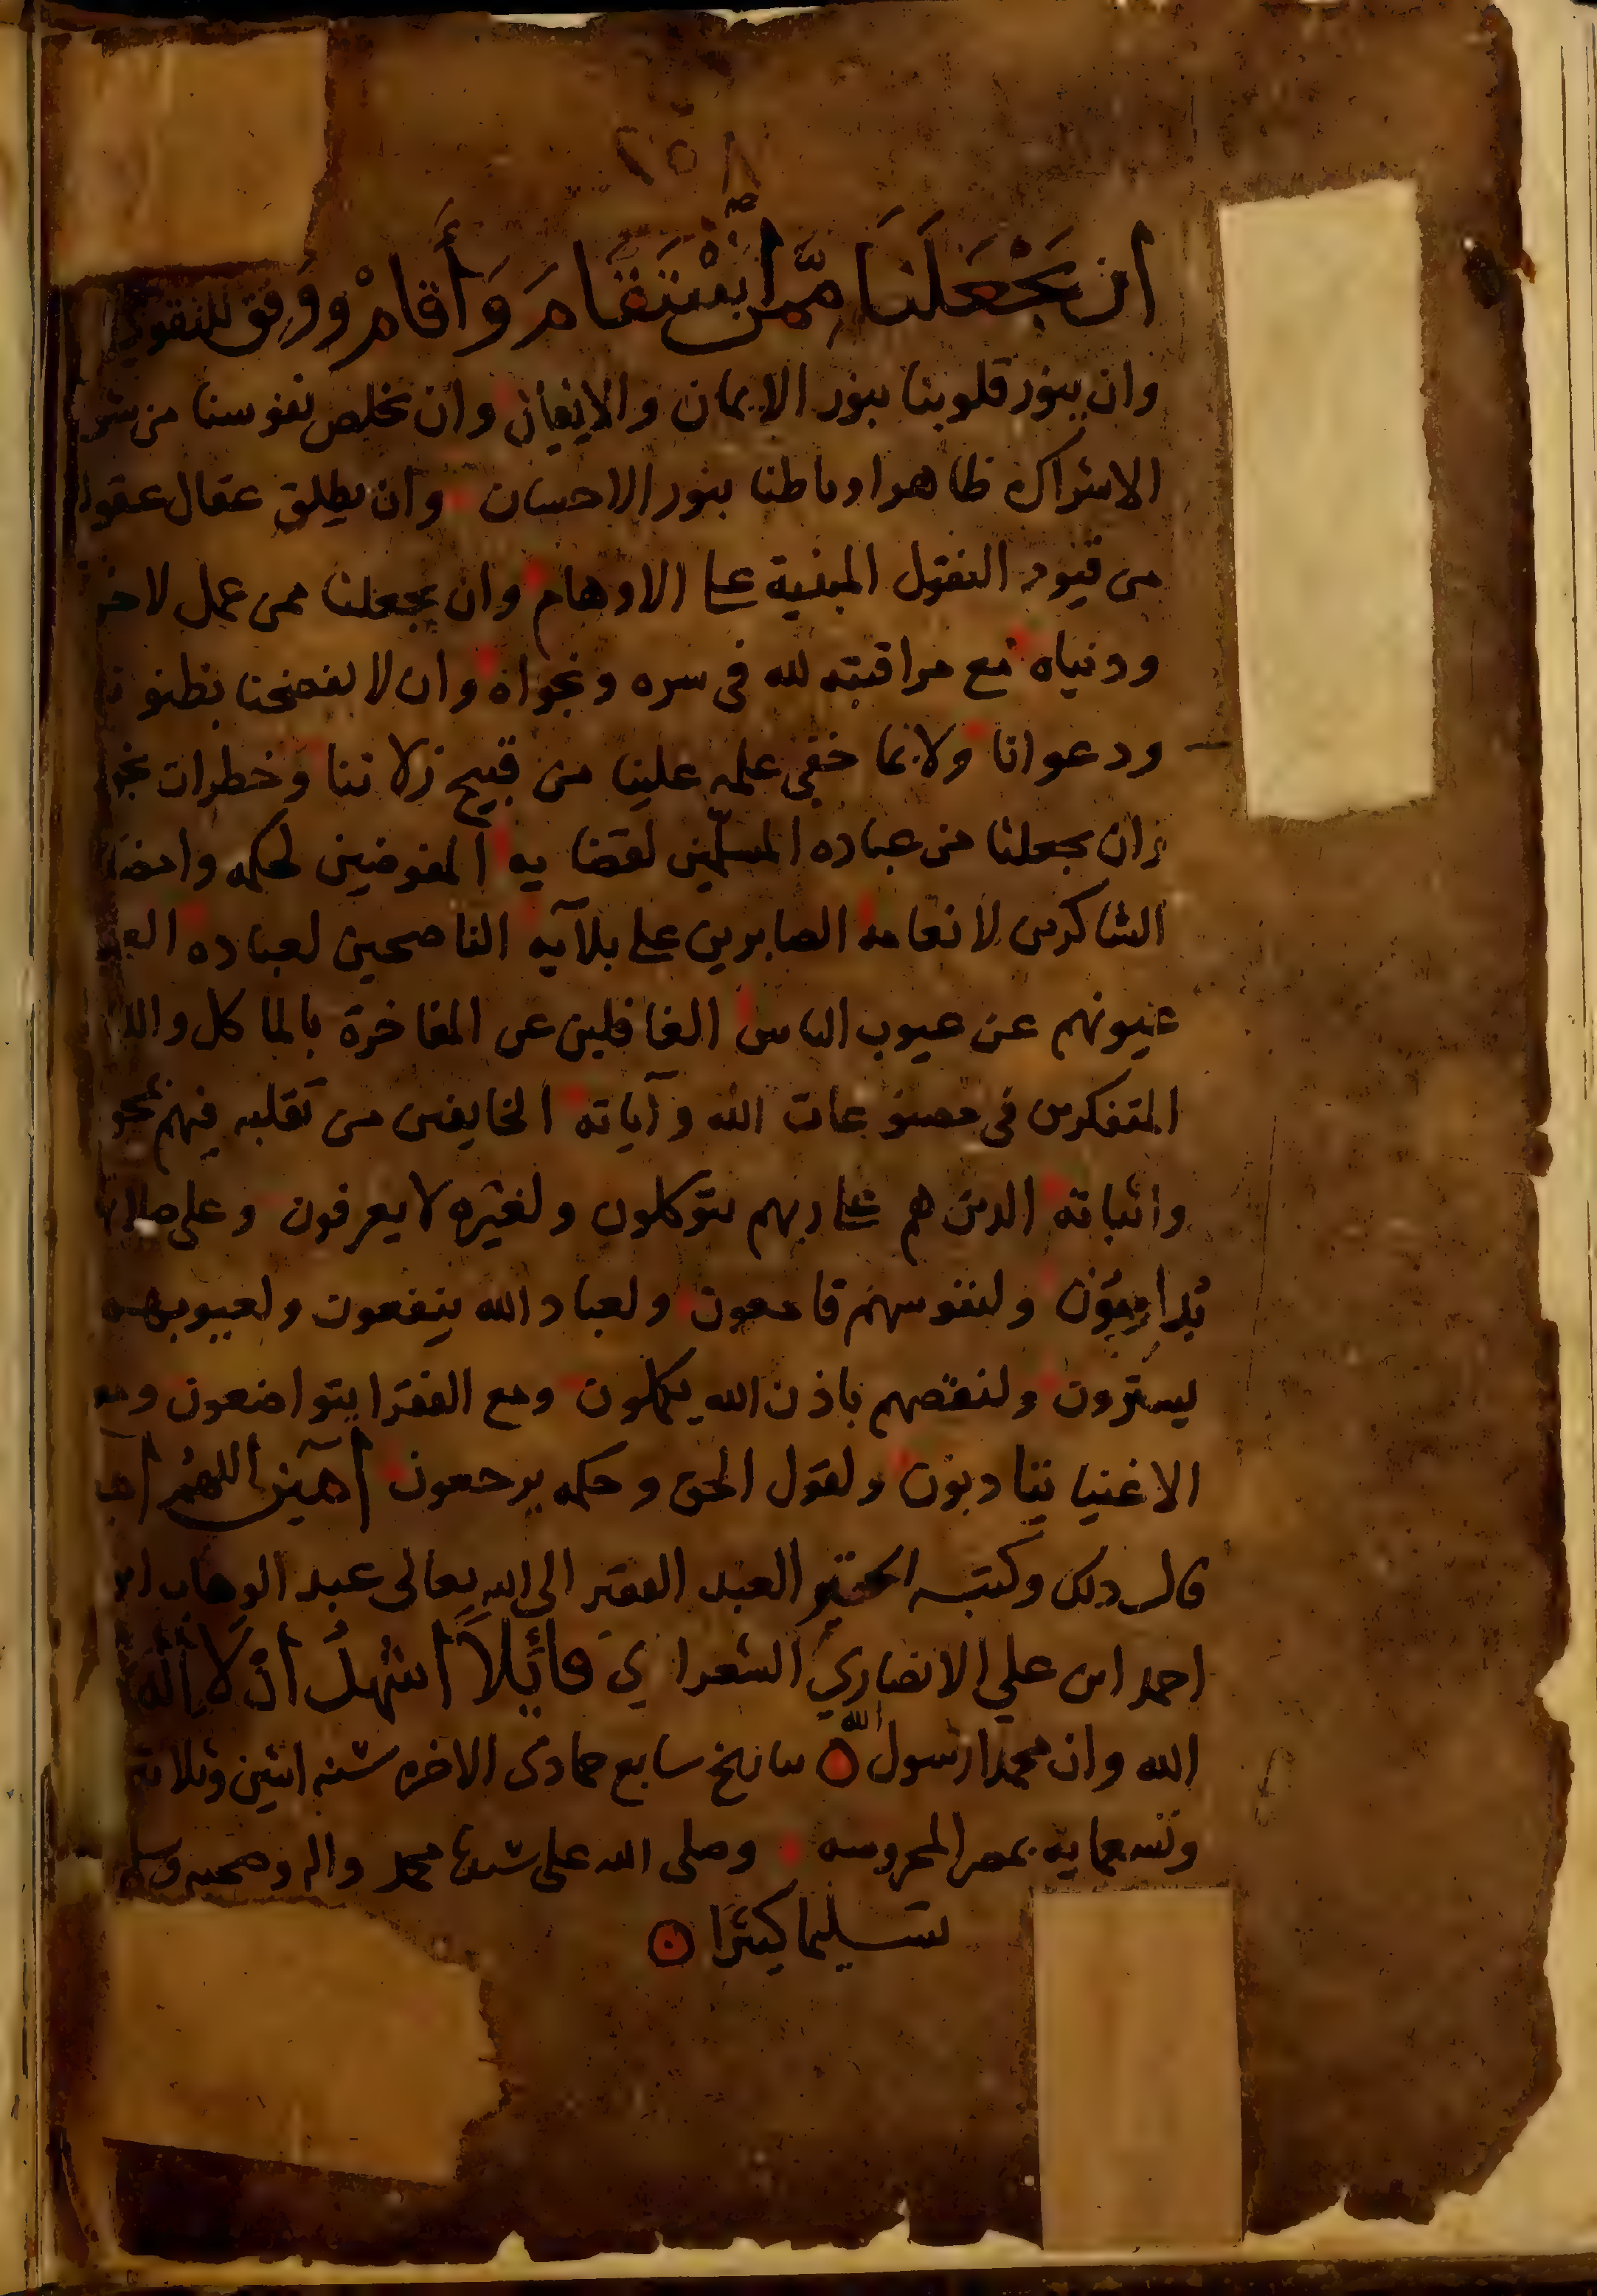 ٢٥٨
ان يَجْعَلَنَا مِمَّن اسْتَقَامَ وَأَقَامْ ووفق للتقوي
وان ينور قلوبنا بنور الايمان والايقان وان يخلص نفوسنا من
الاشراك ظاهرا وباطنا بنور الاحسان وان يطلق عقال
من قيود النقول المبنية على الاوهام وان يجعلنا ممن عمل
ودنياه مع مراقبته لله في سره ونجواه وان لا يفضحنا
ودعوانا ولا بما خفي علمه علينا من قبيح زلاتنا وخطرات
وان يجعلنا من عباده المسلّمين لقضايه المفوضين لحكمه
الشاكرين لانعامه الصابرين على بلآيه الناصحين لعباده
عيونهم عن عيوب الناس الغافلين عن المفاخرة بالماكل
المتفكرين في مصنوعات الله وآياته الخايفين من تقلبه فيهم
واثباته الذين هم على ربهم يتوكلون ولغيره لا يعرفون وعلى
يداومون ولنفوسهم قامعون ولعباد الله ينفعون ولعيوبهم
يسترون ولنقصهم باذن الله يكملون ومع الفقرا يتواضعون ومع
الاغنيا يتادبون ولقول الحق وحكمه يرجعون آمين اللهم
قال ذلك وكتبه الحقير العبد الفقير الى الله تعالى عبد الوهاب
احمد ابن علي الانصاري الشعراوي قائلاً اشهدُ ان لا إله
الله وان محمدا رسول الله بتاريخ سابع جمادى الاخره سنه اثنين وثلاثة
وتسعمايه بمصر المحروسه وصلى الله على سيدنا محمد واله وصحبه وسلم
تسليما كثيرا